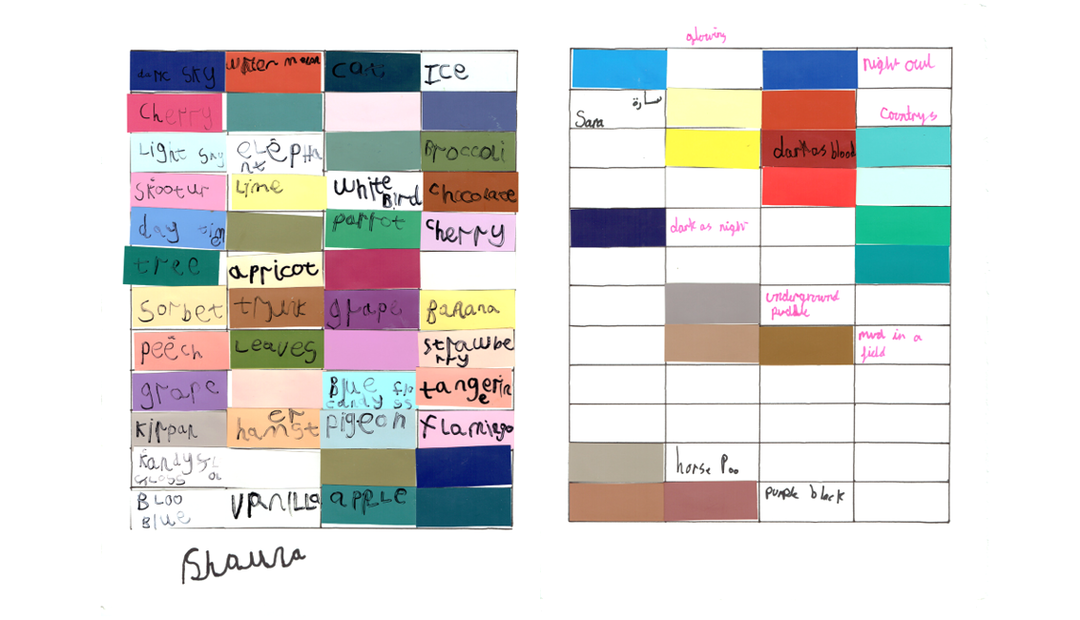 dark sky
water melon
ice
cherry
Light sky
eLēpHa
nt
Broccoli
skootur
Lime
white
Bird
chocolate
day
parrot
cherry
tree
apricot
sorbet
trunk
grape
Banana
peēch
Leaves
strawbe
rry
grape
Blue flo
candy ss
tangerin
e
kirpan
er
hamst
pigeon
flamingo
BLOO
Blue
vanilla
apple
Shauna
glowing
night owl
سارة
Sara
Countrys
dark as blood
dark as night
underground
puddle
mud in a
field
horse Poo
purple black